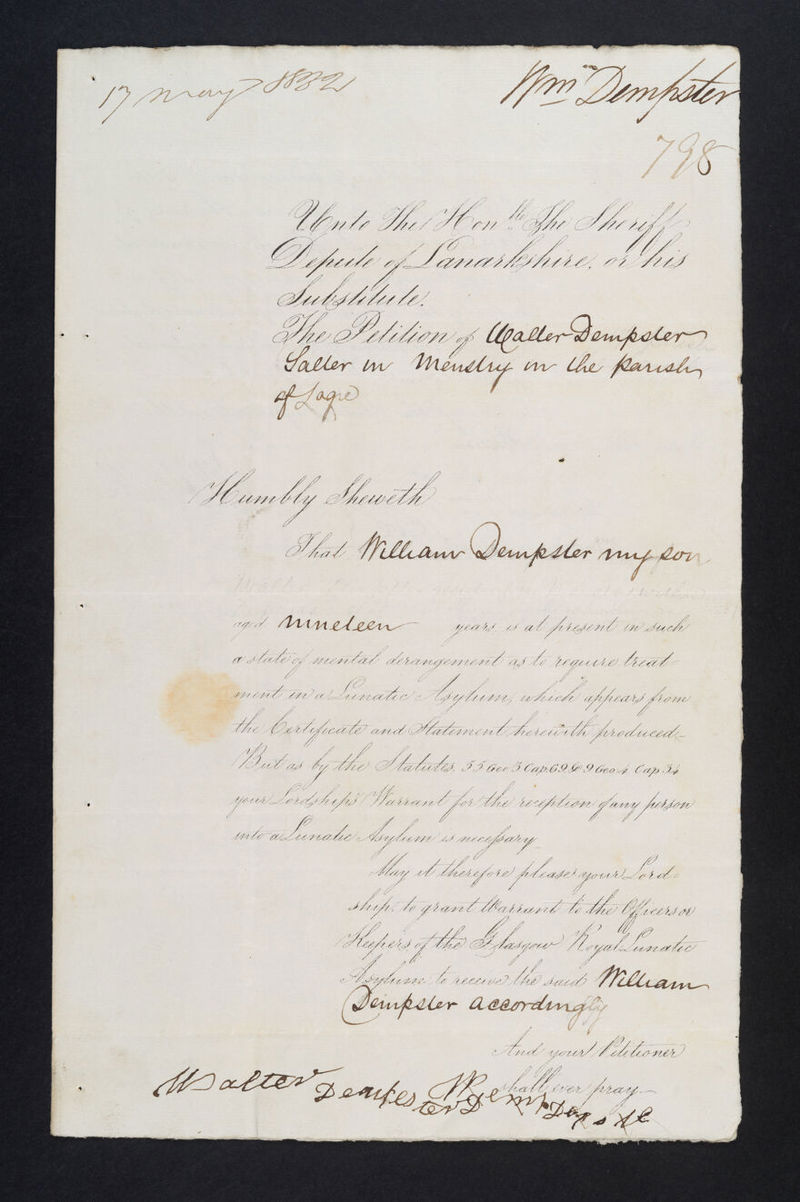 17 May 1832
Wm Dempster
798
Unto The Honble. The Sheriff
Depute of Lanarkshire. or his
Substitute.
The Petition of Walter Dempster
Salter in Menstry in the parish
of Logie
Humbly Sheweth
That William Dempster my son
aged nineteen years is at present in such
a state of mental derangement as to require treat-
ment in a Lunatic Asylum, which appears from
the Certificate and Statement herewith produced.
But as by the Statutes 55 Geo 3 Cap. 69 & 9 Geo 4 Cap 34
your Lordships Warrant for the reception of any person
into a Lunatic Asylum is necessary
May it therefore please your Lord-
ship, to grant Warrant to the Officers or
Keepers of the Glasgow Royal Lunatic
Asylum to receive the said William
Dempster accordingly
And your Petitioner
shall ever pray
Walter Dempster